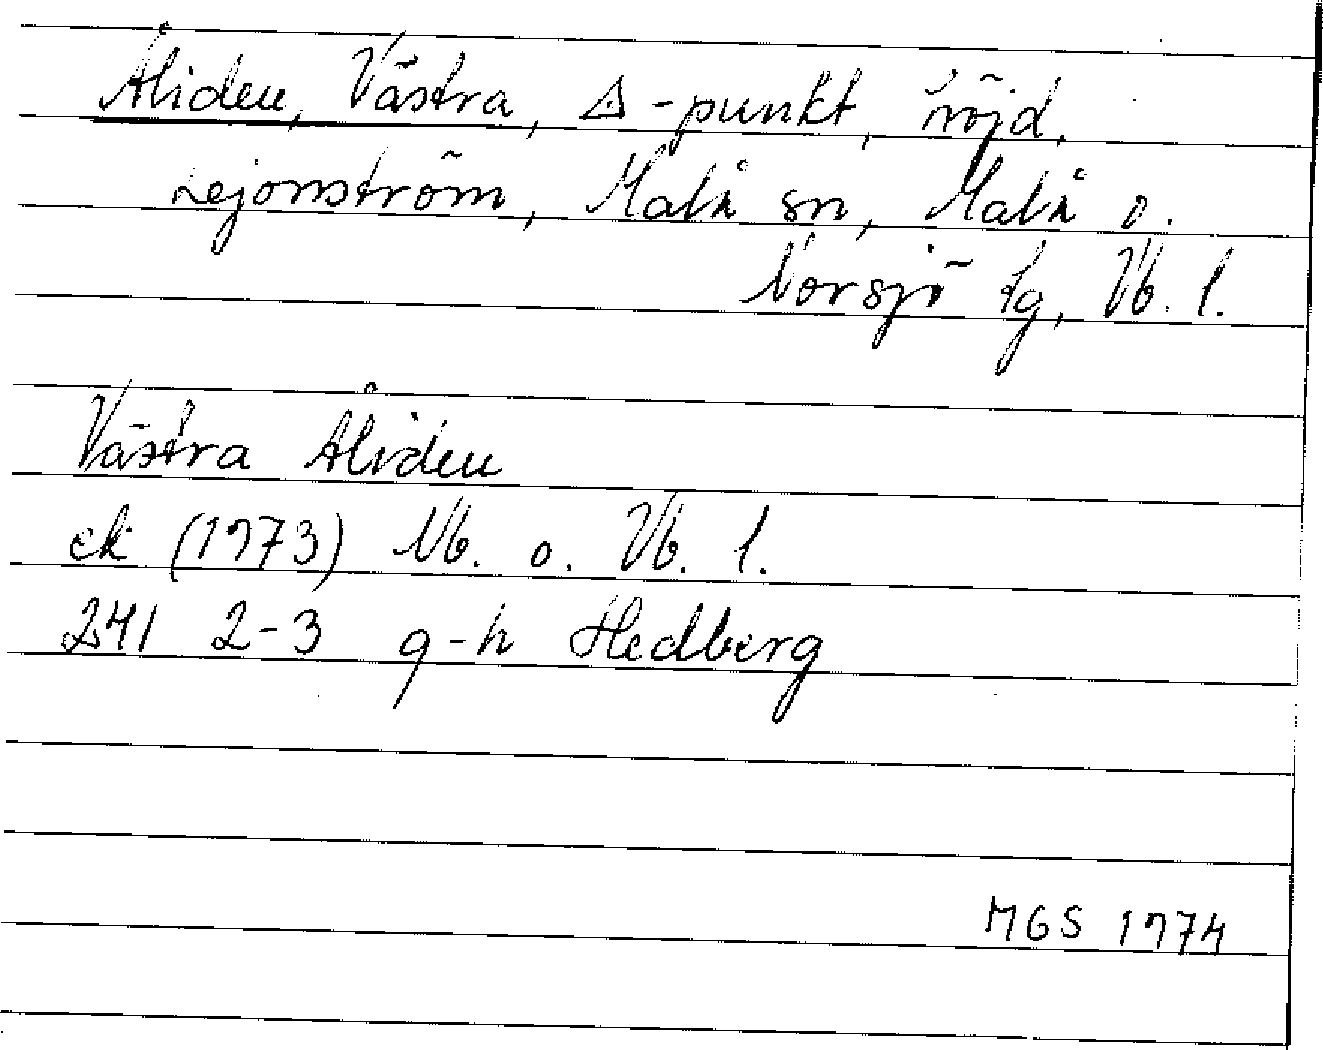 Åliden, Västra, △-punkt, höjd.
Lejonström, Malå sn, Malå o.
Norsjö tg, Vb. l.
Västra Åliden
ek (1973) Nb. o. Vb. l.
241 2-3 g-h Hedberg
MGS 1974